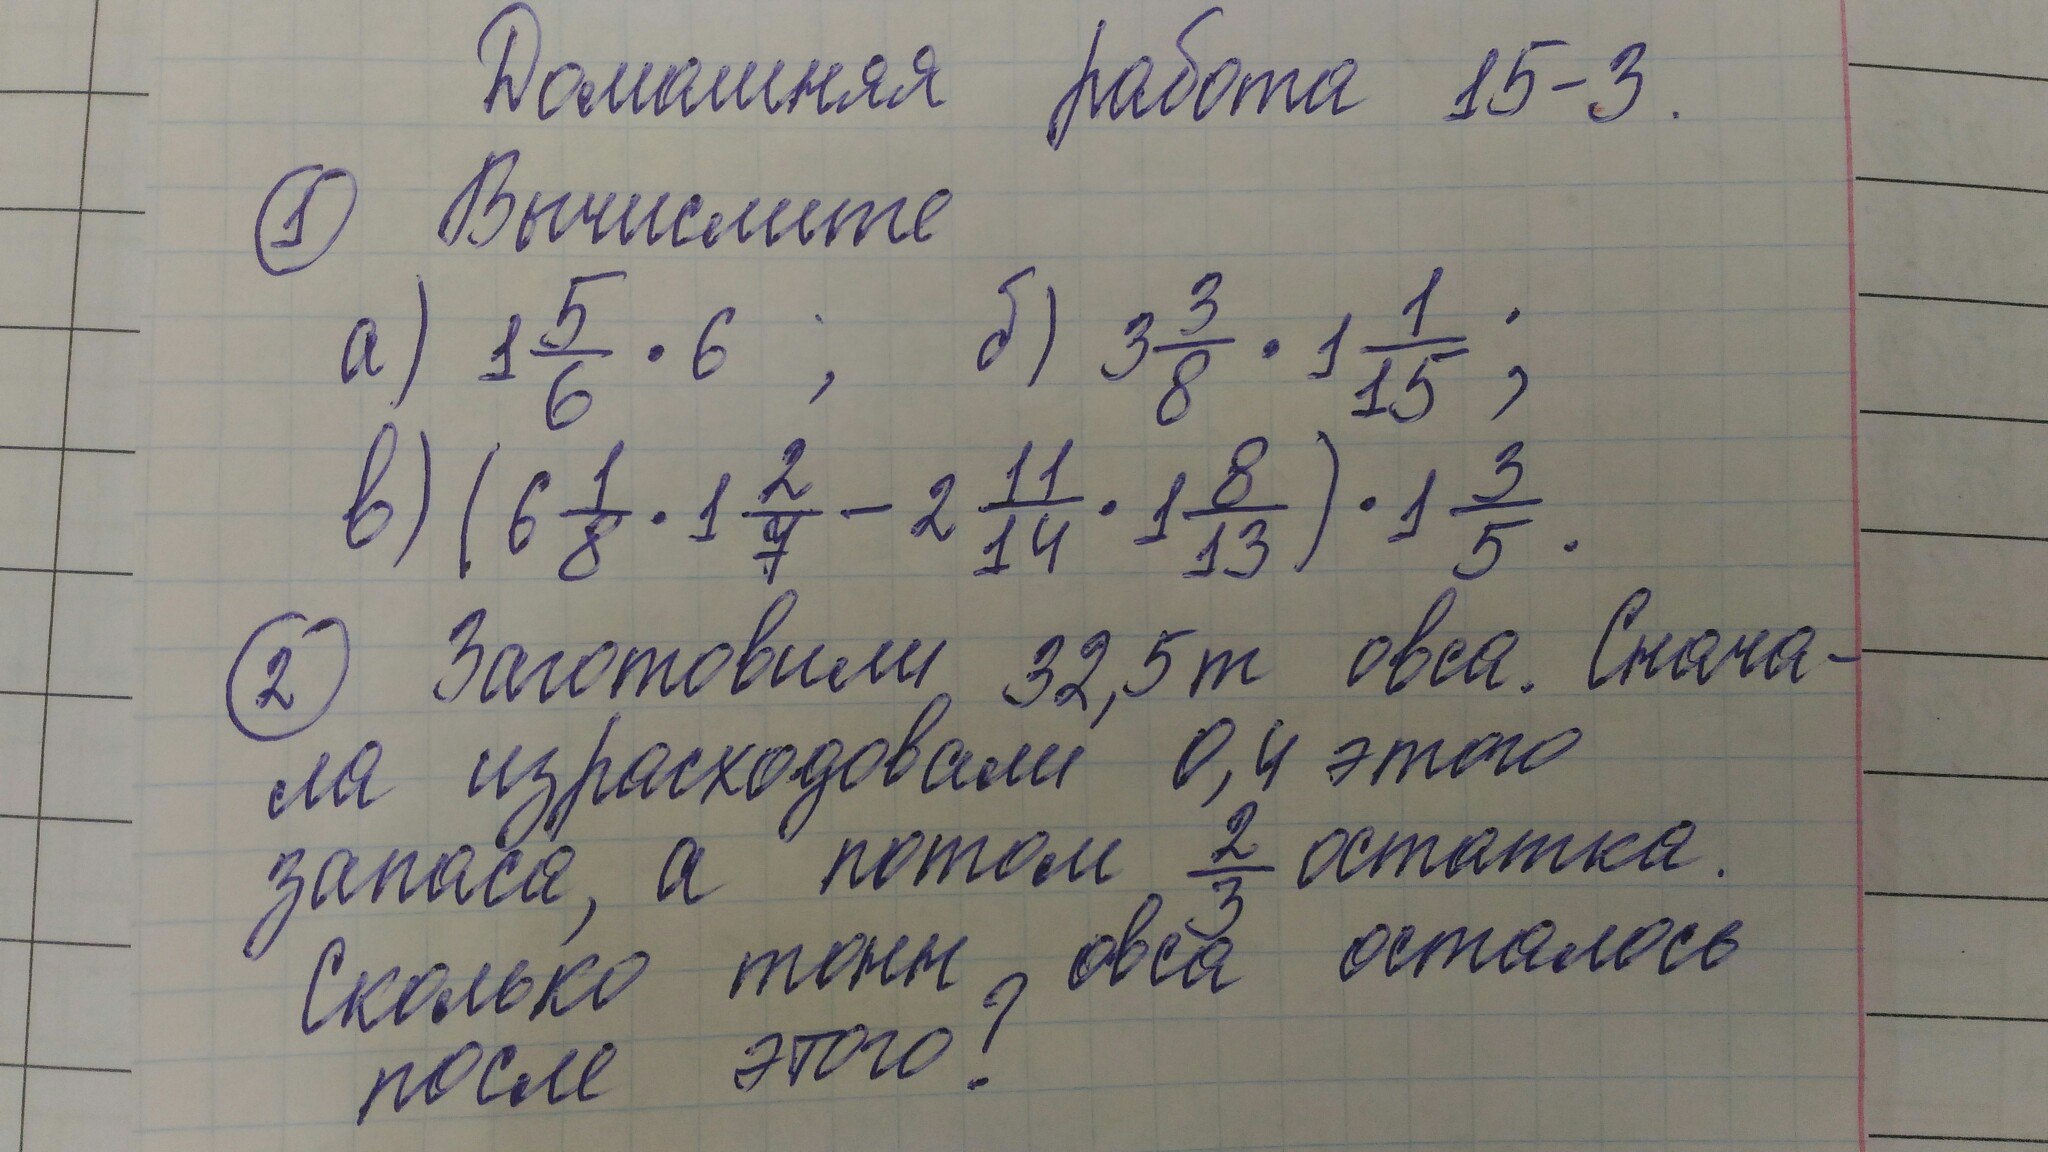 Домашняя работа 15-3.
① Вычислите
а) 1 5/6 · 6 ; б) 3 3/8 · 1 1/15 ;
в) (6 1/8 · 1 2/7 - 2 11/14 · 1 8/13) · 1 3/5 .
② Заготовили 32,5т овса. Снача-
ла израсходовали 0,4 этого
запаса, а потом 2/3 остатка.
Сколько тонн овса осталось
после этого?